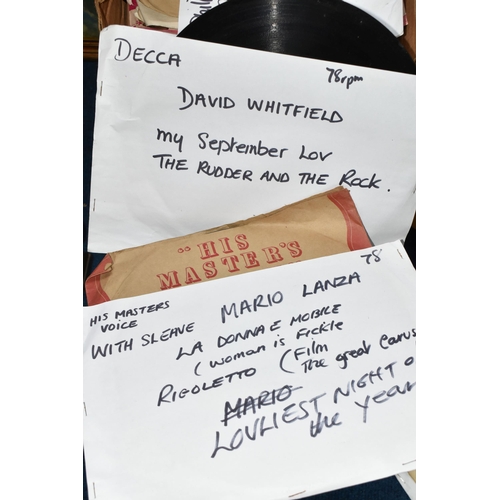 DECCA
78rpm
DAVID WHITFIELD
my September Lov
THE RUDDER AND THE ROCK.
"HIS
MASTER'S
78'
HIS MASTERS
VOICE
MARIO LANZA
WITH SLEAVE
LA DONNA E MOBILE
(Woman is Fickle
RIGOLETTO (Film
The great Carus
MARIO
LOVLIEST NIGHT O
the year